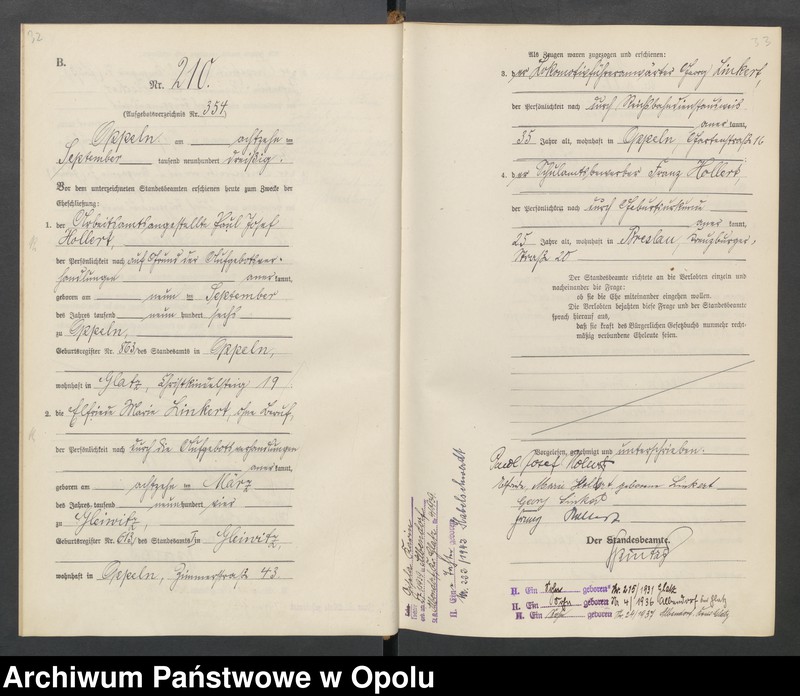 32
B.
Nr. 210.
(Aufgebotsverzeichnis Nr. 354)
Oppeln am achtzehn ten
September tausend neunhundert dreißig.
Vor dem unterzeichneten Standesbeamten erschienen heute zum Zwecke der
Eheschließung:
1. der Arbeitsamtsangestellte Paul Josef
Hollert,
der Persönlichkeit nach auf Grund der Aufgebotsver-
handlungen anerkannt,
geboren am neun ten September
des Jahres tausend neun hundert sechs
zu Oppeln,
Geburtsregister Nr. 563 des Standesamts in Oppeln,
wohnhaft in Glatz, Christkindelsteig 19
2. die Elfriede Marie Linkert, ohne Beruf,
der Persönlichkeit nach durch die Aufgebotsverhandlungen
anerkannt,
geboren am achtzehn ten März
des Jahres tausend neunhundert vier
zu Gleiwitz,
Geburtsregister Nr. des Standesamts in Gleiwitz,
wohnhaft in Oppeln, Zimmerstraße 43
33
Als Zeugen waren zugezogen und erschienen:
3. der Lokomotivführeranwärter Georg Linkert,
der Persönlichkeit nach durch Reichsbahndienstausweis
anerkannt,
35 Jahre alt, wohnhaft in Oppeln, Gartenstraße 16
4. der Schulamtsbewerber Franz Hollert,
der Persönlichkeit nach durch Geburtsurkunde
anerkannt,
25 Jahre alt, wohnhaft in Breslau, Kreuzburger-
straße 20
Der Standesbeamte richtete an die Verlobten einzeln und
nacheinander die Frage:
ob sie die Ehe miteinander eingehen wollen.
Die Verlobten bejahten diese Frage und der Standesbeamte
sprach hierauf aus,
daß sie kraft des Bürgerlichen Gesetzbuchs nunmehr recht-
mäßig verbundene Eheleute seien.
Vorgelesen, genehmigt und unterschrieben.
Paul Josef Hollert
Elfriede Marie Hollert geborene Linkert
Georg Linkert
Franz Hollert
Der Standesbeamte.
II. Ein geboren Nr. 215/1931 Glatz
II. Ein geboren Nr 4/1936 Albendorf bei Glatz
II. Ein geboren Nr 24/1937 Albendorf Kreis Glatz
II. Eine Tochter geboren
Nr. 223/1943 Habelschwerdt
Archiwum Państwowe w Opolu